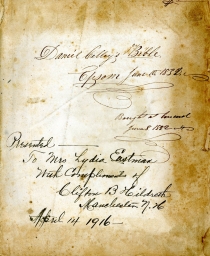 Daniel Colby's Bible
Epsom June 8. 1832
Bought at Concord
June 8. 1832
Presented
To Mrs Lydia Eastman
With Compliments of
Clifton B Hildreth
Manchester N.H
April 14 1916